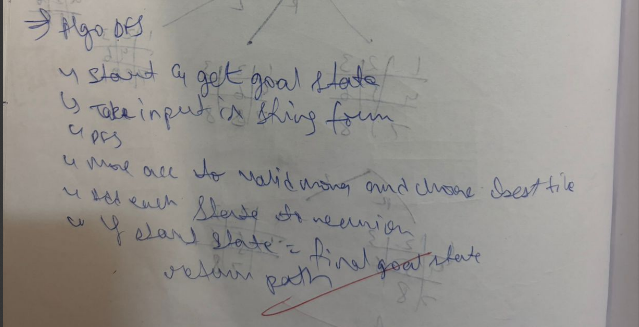 ⇒ Algo DFS
↳ Start & get goal state
↳ Take input in string form
↳ DFS
↳ Move acc to valid moves and choose best tile
↳ Add each state to recursion
↳ If start state = final goal state
return path